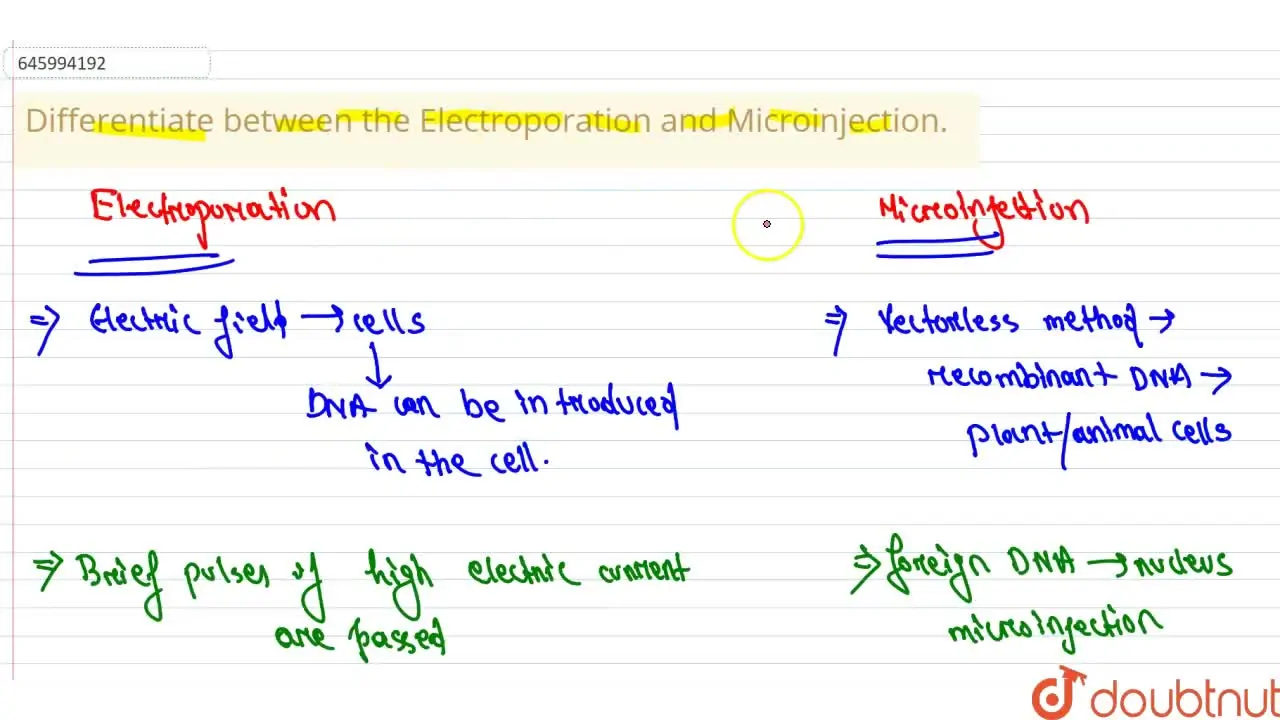 645994192
Differentiate between the Electroporation and Microinjection.
Electroporation
Microinjection
⇒ Electric field → cells
↓
DNA can be introduced
in the cell.
⇒ Vectorless method →
recombinant DNA →
plant/animal cells
⇒ Brief pulses of high electric current
are passed
⇒ foreign DNA → nucleus
microinjection
doubtnut